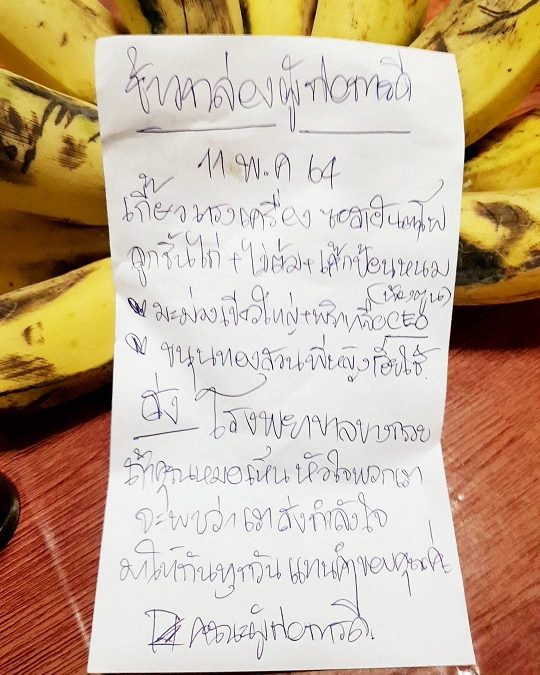 ข้าวกล่องผู้ก่อการดี
11 พ.ค 64
เกี๊ยวทรงเครื่อง ซอสเย็นตาโฟ
ลูกชิ้นไก่ + ไข่ต้ม + เต้าป้อนหนม
(น้องตูน)
มะม่วงเขียวใหญ่+พริกเกลือCEO
ขนุนทองสวนพี่หญิงร้อยใช้.
ส่ง โรงพยาบาลบางกรวย
ถ้าคุณหมอเห็น หัวใจพวกเรา
จะพบว่า เราส่งกำลังใจ
มาให้กันทุกวัน แทนคำขอบคุณค่ะ
คณะผู้ก่อการดี.